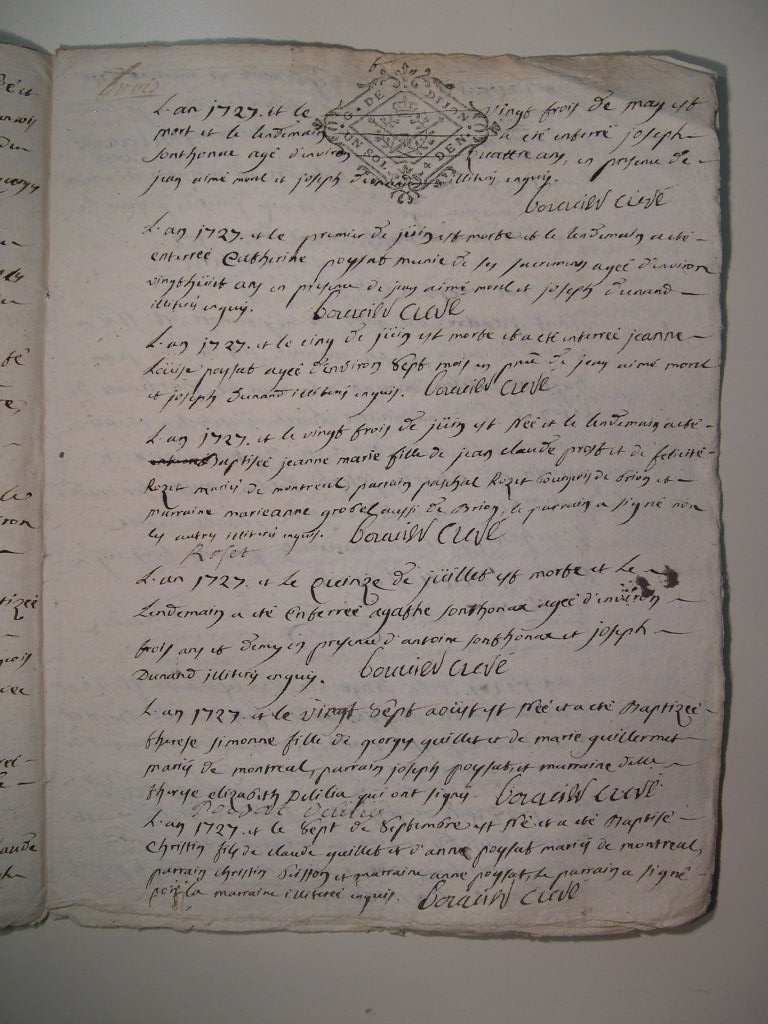 trois
L'an 1727. et le vingt trois de may est
G. DE DIJON
UN SOL 4 DEN
mort et le lendemain a été enterré joseph
Sonthonax agé d'environ quattre ans, en presence de
jean aimé morel et joseph Dunand illiterés enquis.
Curé
L'an 1727. et le premier de jüin est morte et le lendemain a eté
enterrée Catherine poysat munie de ses sacremens agée d'environ
vingthüit ans en presence de jean aimé morel et joseph Dunand
illiterés enquis. Curé
L'an 1727. et le cinq de jüin est morte et a eté enterrée jeanne
Loüise poysat agée d'environ sept mois en pnce de jean aimé morel
et joseph Dunand illiterés enquis. Curé
L'an 1727. et le vingt trois de jüin est Née et le lendemain a eté
Baptisée jeanne marie fille de jean claude prost et de felicité
Rozet mariés de montreal, parrain paschal Rozet Bourgeois de Brion et
marraine marieanne grobel aussi de Brion, le parrain a signé non
les autres illiterés enquis. Curé
Roset
L'an 1727. et le quinze de jüillet est morte et le
Lendemain a eté Enterrée agathe Sonthonax agée d'environ
trois ans et demy en presence d'antoine Sonthonax et joseph
Dunand illiterés enquis. Curé
L'an 1727. et le vingt sept aoüst est Née et a eté Baptizée
therese simonne fille de georges guillet et de marie guillermet
mariés de montreal, parrain joseph poysat, et marraine delle
therese elizabeth Delilia qui ont signés. Curé
Poysat Delilia
L'an 1727. et le sept de septembre est Né et a eté Baptisé
Christin fils de claude guillet et d'anne poysat mariés de montreal,
parrain christin et marraine anne poysat, le parrain a signé
la marraine illiterée enquis. Curé